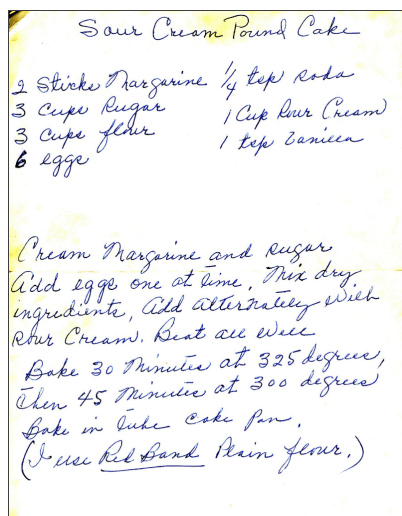 Sour Cream Pound Cake
2 Sticks Margarine 1/4 tsp soda
3 Cups Sugar 1 Cup Sour Cream
3 Cups flour 1 tsp Vanilla
6 eggs
Cream Margarine and sugar
Add eggs one at time, Mix dry
ingredients, Add alternately with
Sour Cream. Beat all well
Bake 30 Minutes at 325 degrees,
then 45 Minutes at 300 degrees
Bake in tube cake pan.
(I use Red Band Plain flour.)